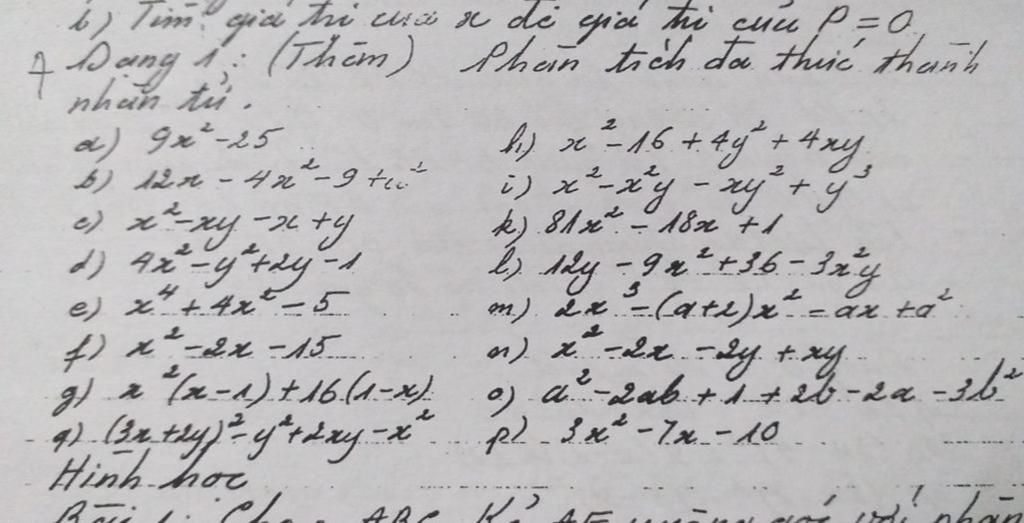 b) Tìm giá trị của x để giá trị của P = 0
7 Dạng 1: (Thêm) Phân tích đa thức thành
nhân tử.
a) 9x² - 25
b) 12x - 4x² - 9 + a²
c) x² - xy - x + y
d) 4x² - y² + 2y - 1
e) x⁴ + 4x² - 5
f) x² - 2x - 15
g) x²(x-1) + 16(1-x)
q) (3x+2y)² - y² + 2xy - x²
h) x² - 16 + 4y² + 4xy
i) x² - x²y - xy² + y³
k) 81x² - 18x + 1
l) 12y - 9x² + 36 - 3x²y
m) 2x³ - (a+2)x² - ax + a²
n) x² - 2x - 2y + xy
o) a² - 2ab + 1 + 2b - 2a - 3b²
p) 3x² - 7x - 10
Hình học
Bài 1: Cho ABC. Kẻ vuông góc với phân